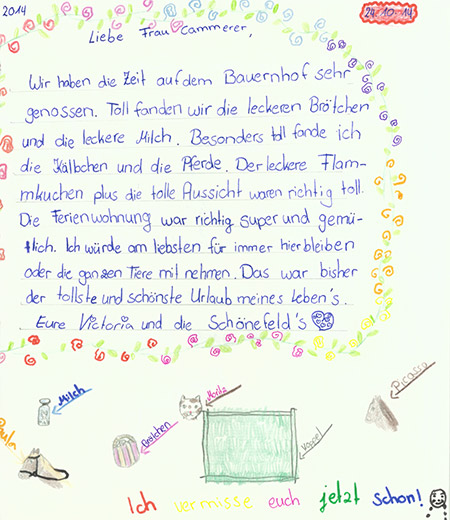 2014
24.10.14
Liebe Frau Cammerer,
Wir haben die Zeit auf dem Bauernhof sehr
genossen. Toll fanden wir die leckeren Brötchen
und die leckere Milch. Besonders toll fande ich
die Kälbchen und die Pferde. Der leckere Flam-
mkuchen plus die tolle Aussicht waren richtig toll.
Die Ferienwohnung war richtig super und gemü-
tlich. Ich würde am liebsten für immer hier bleiben
oder die ganzen Tiere mit nehmen. Das war bisher
der tollste und schönste Urlaub meines Leben's.
Eure Victoria und die Schönefeld's
Milch
Moritz
Picasso
Paula
Brötchen
Koppel
Ich vermisse euch jetzt schon!